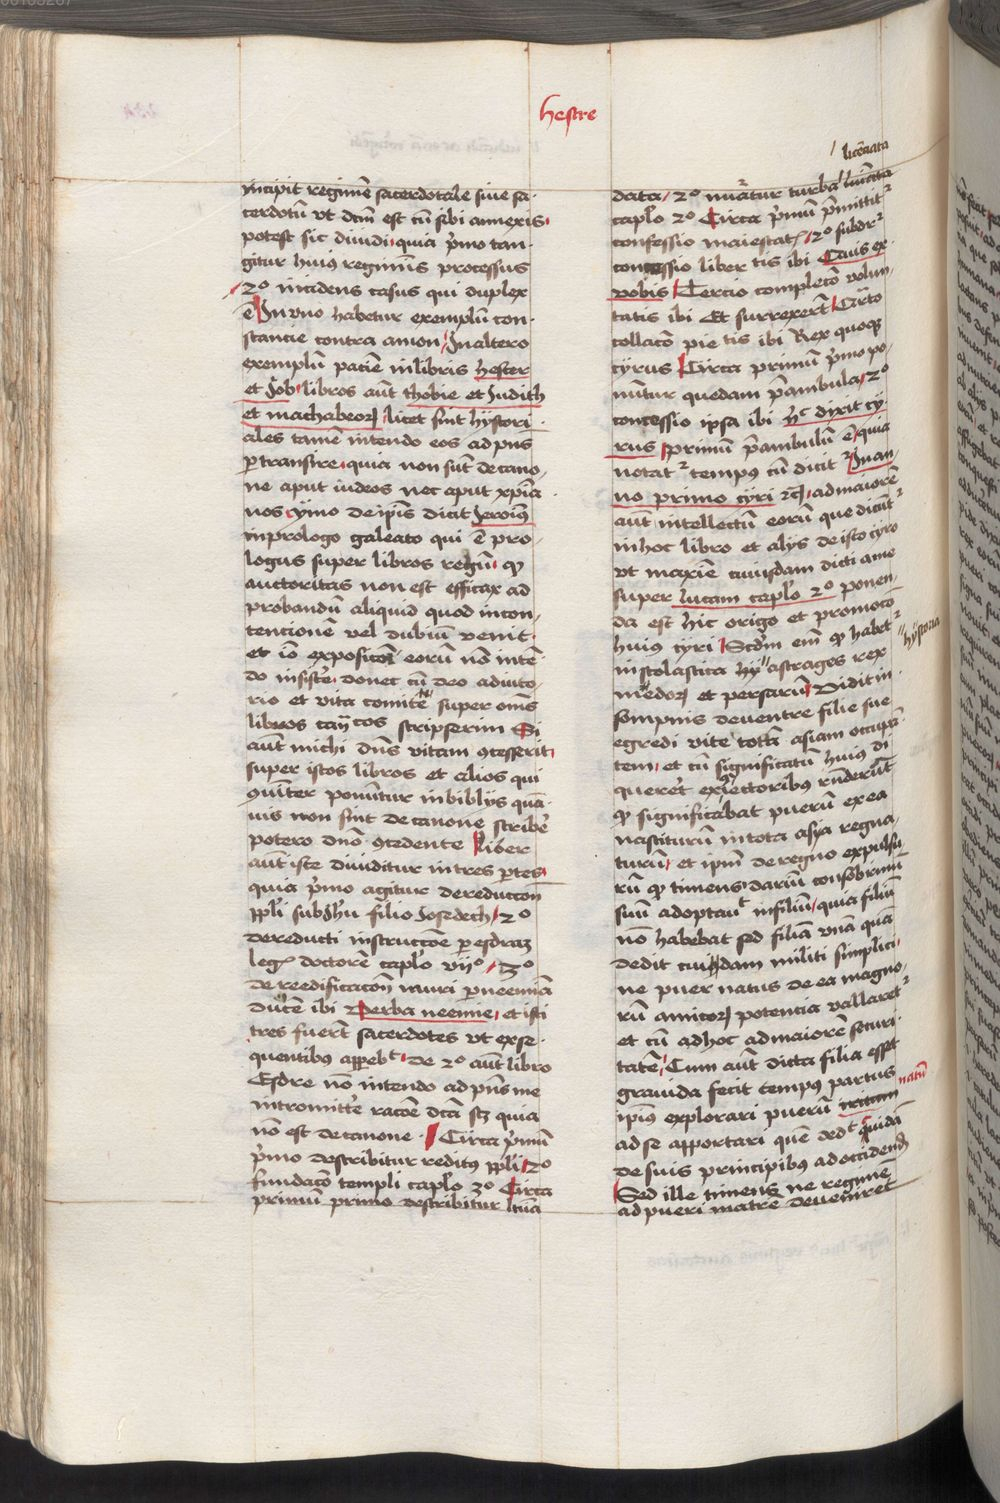 hestre
incipit regimē sacerdotale siue sa-
cerdotū vt dcm̄ est cū sibi annexis
potest sic diuidi quia p̄mo tan-
gitur huius regiminis processus
2º incidens casus qui duplex
ē In vno habetur exemplū con-
stancie contra amon In altero
exemplū paciē in libris hester
et Job libros aūt thobie et Judith
et machabeoꝝ licet sint hystori
ales tamē intendo eos ad pn̄s
ꝑtransire quia non sūt de cano-
ne aput iudeos nec aput xp̄ia
nos ymo de ip̄is dicit Jeronim9
in prologo galeato qui ē pro-
logus super libros regū ꝙ
auctoritas non est efficax ad
probandū aliquid quod in con-
tencionē vel dubiū venit
et iō exposicōi eorū nō inten-
do insistē donec cū deo adiuto-
rio et vita comite super om̄s
libros scripserim Si
aūt michi dn̄s vitam ꝯcesserit
super istos libros et alios qui
ꝯūiter ponūtur in biblijs quā-
uis non sint de canone scribē
potero dn̄o ꝯcedente Liber
aūt iste diuiditur in tres ꝑtes
quia p̄mo agitur de reductiōn
ppli sub Jhū filio Josedech 2º
de reducti instructiōe ꝑ esdram
leg doctorē caplo vijº 3º
de reedificacōn muri ꝑ neemiā
ducē ibi Verba neemie et isti
tres fuerūt sacerdotes vt ex se-
quentibus appebt De 2º aūt libro
Esdre nō intendo ad pn̄s me
intromittē racōe dcā scz quia
nō est de canone Circa p̄mū
p̄mo describitur reditus ppli 2º
fundacō templi caplo 3º Circa
primū primo describitur lcīa
licēciata
data 2º nūatur turba
caplo 2º Circa p̄mū p̄mittitr
confessio maiestat 2º subdr
concessio liber tis ibi Quis ex
vobis Tercio completō volun-
tatis ibi Et surrexerūt Qārto
collacō pie tis ibi Rex quoqꝫ
cyrus Circa primū p̄mo po-
nūtur quedam p̄ambula 2º
concessio ipsa ibi hec dixit cy
rus primū p̄ambulū ē quia
notatr tempus cū dicit In an-
no primo cyri ad maiorē
aūt intellectū eorū que dicūtr
in hoc libro et alys de isto cyro
vt maxiē cuiusdam dicti a me
super lucam caplo 2º ponen-
da est hic origo et promocō
huius cyri Scdm em̄ ꝙ habetr
hystoria
in scolastica hy astrages rex
medoꝝ et persarū Vidit in
sompnis de ventre filie sue
egredi vitē totā asiam occupā-
tem et cū significatū huius di
quereret a coniectoribus rn̄derūt
ꝙ significabat puerū ex ea
nasciturū in tota asya regna-
turū et ip̄m de regno expulsu-
rū ꝙ timens dariū consobrinū
suū adoptauit in filiū quia filiū
nō habebat sed filiā vnā quā
dedit cuidam militi simplici
ne puer natus de ea magno-
rū amicoꝝ potencia vallaretr
et cū adhoc ad maiorē securi-
tatē Cum aūt dicta filia esset
grauida fecit tempus partus
natū
ip̄ius explorari puerū
ad se apportari quē dedt cuidā
de suis principibus ad occidend
Sed ille timens ne regimē
ad pueri matrē deueniret